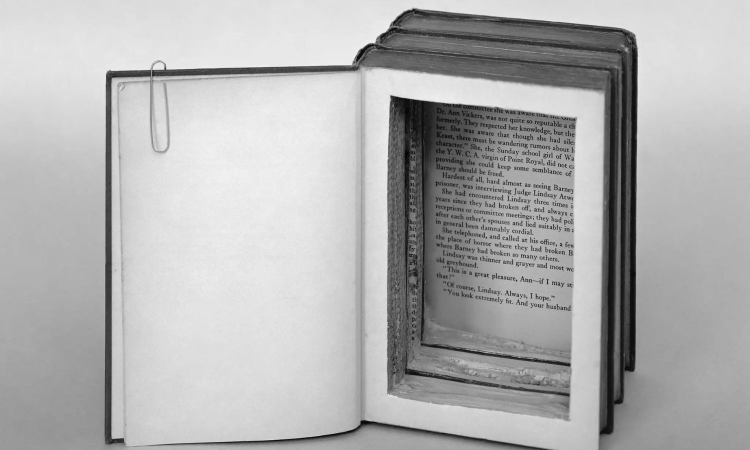 the committee she was aware that
Dr. Ann Vickers, was not quite so reputable a
formerly. They respected her knowledge, but the
her. She was aware that though she had
Keast, there must be wandering rumors about
character." She, the Sunday school girl of Wa
the Y. W. C. A. virgin of Point Royal, did not
providing she could keep some semblance of
Barney should be freed.
Hardest of all, hard almost as seeing Barney
prisoner, was interviewing Judge Lindsay Atwe
She had encountered Lindsay three times i
years since they had broken off, and always c
receptions or committee meetings; they had pol
after each other's spouses and lied suitably in
in general been damnably cordial.
She telephoned, and called at his office, a few
the place of horror where they had broken B
where Barney had broken so many others.
Lindsay was thinner and grayer and most we
old greyhound.
"This is a great pleasure, Ann—if I may st
that!"
"Of course, Lindsay. Always, I hope."
"You look extremely fit. And your husband